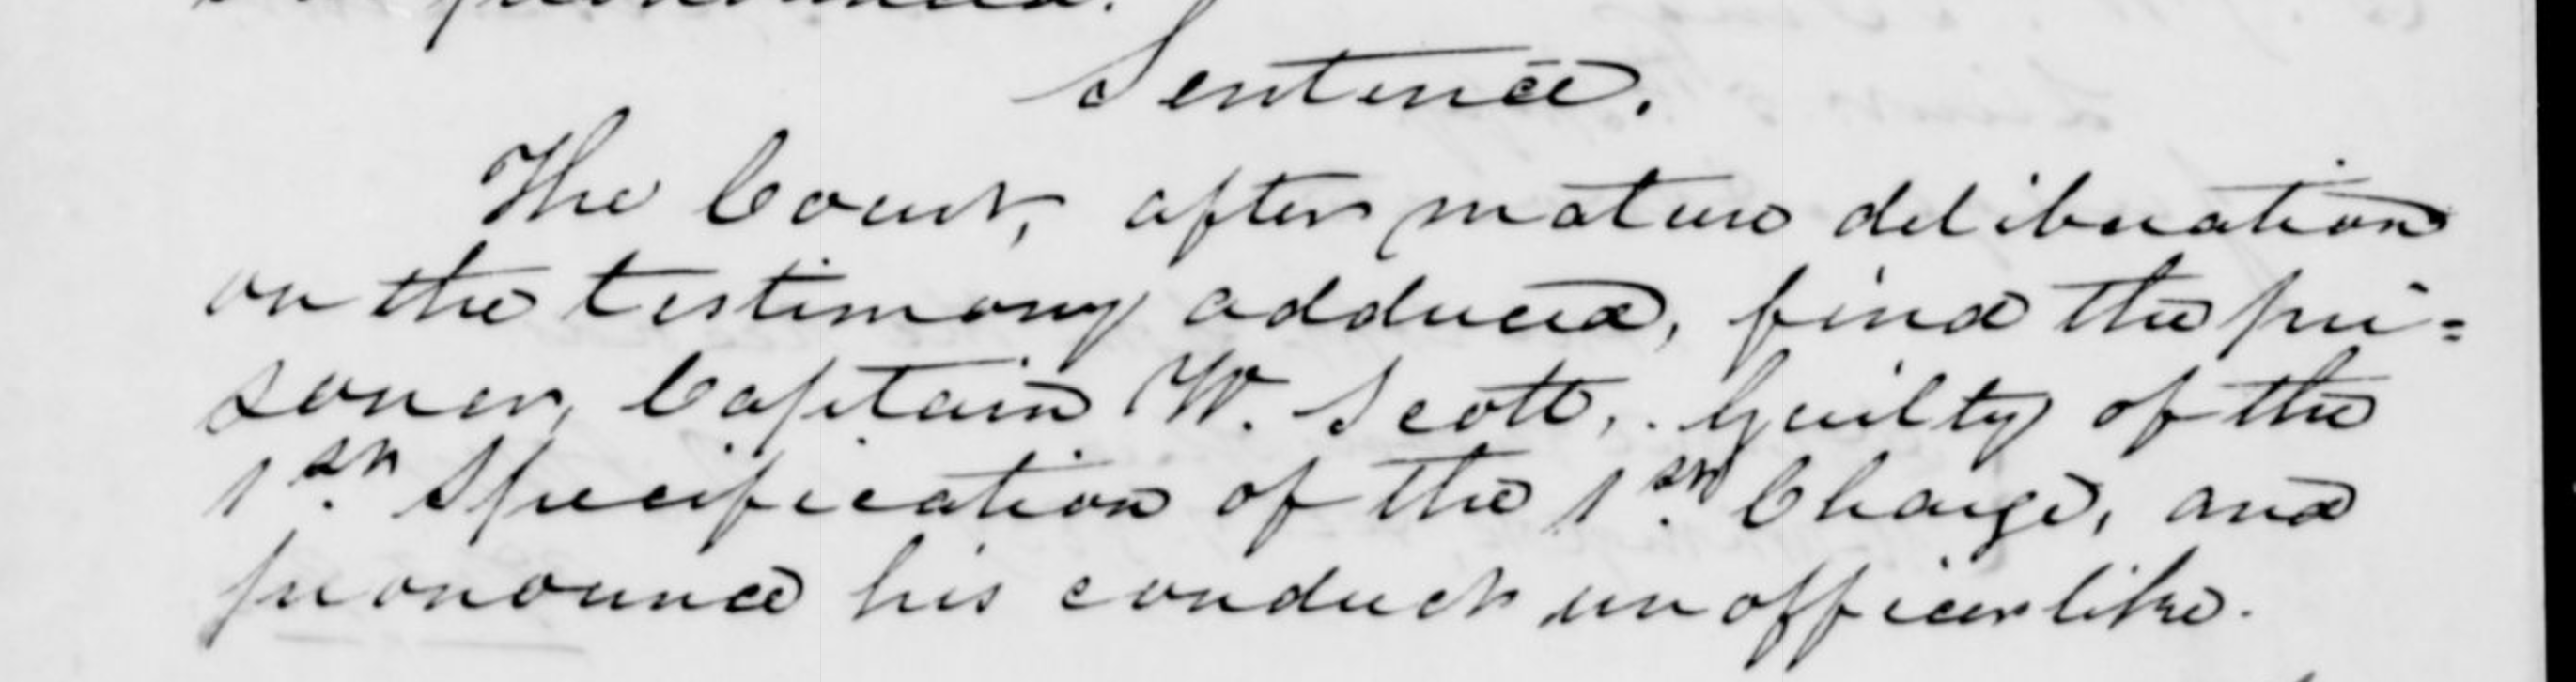 Sentence.
The Court, after mature deliberation
on the testimony adduced, find the pri=
soner, Captain W. Scott, Guilty of the
1st Specification of the 1st Charge, and
pronounce his conduct unofficerlike.